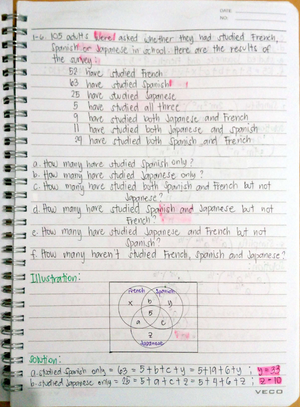 DATE
NO.
1-6. 105 adults were asked whether they had studied French,
Spanish or Japanese in school. Here are the results of
the survey:
52 have studied French
63 have studied Spanish
25 have studied Japanese
5 have studied all three
9 have studied both Japanese and French
11 have studied both Japanese and Spanish
29 have studied both Spanish and French
a. How many have studied Spanish only?
b. How many have studied Japanese only?
c. How many have studied both Spanish and French but not
Japanese?
d. How many have studied Spanish and Japanese but not
French?
e. How many have studied Japanese and French but not
Spanish?
f. How many haven't studied French, Spanish and Japanese?
Illustration:
French Spanish
x b y
5
a c
z
Japanese
Solution:
a. studied Spanish only = 63 = 5+b+c+y = 5+19+6+y ; y = 33
b. studied Japanese only = 25 = 5+a+c+z = 5+4+6+z ; z = 10
VECO